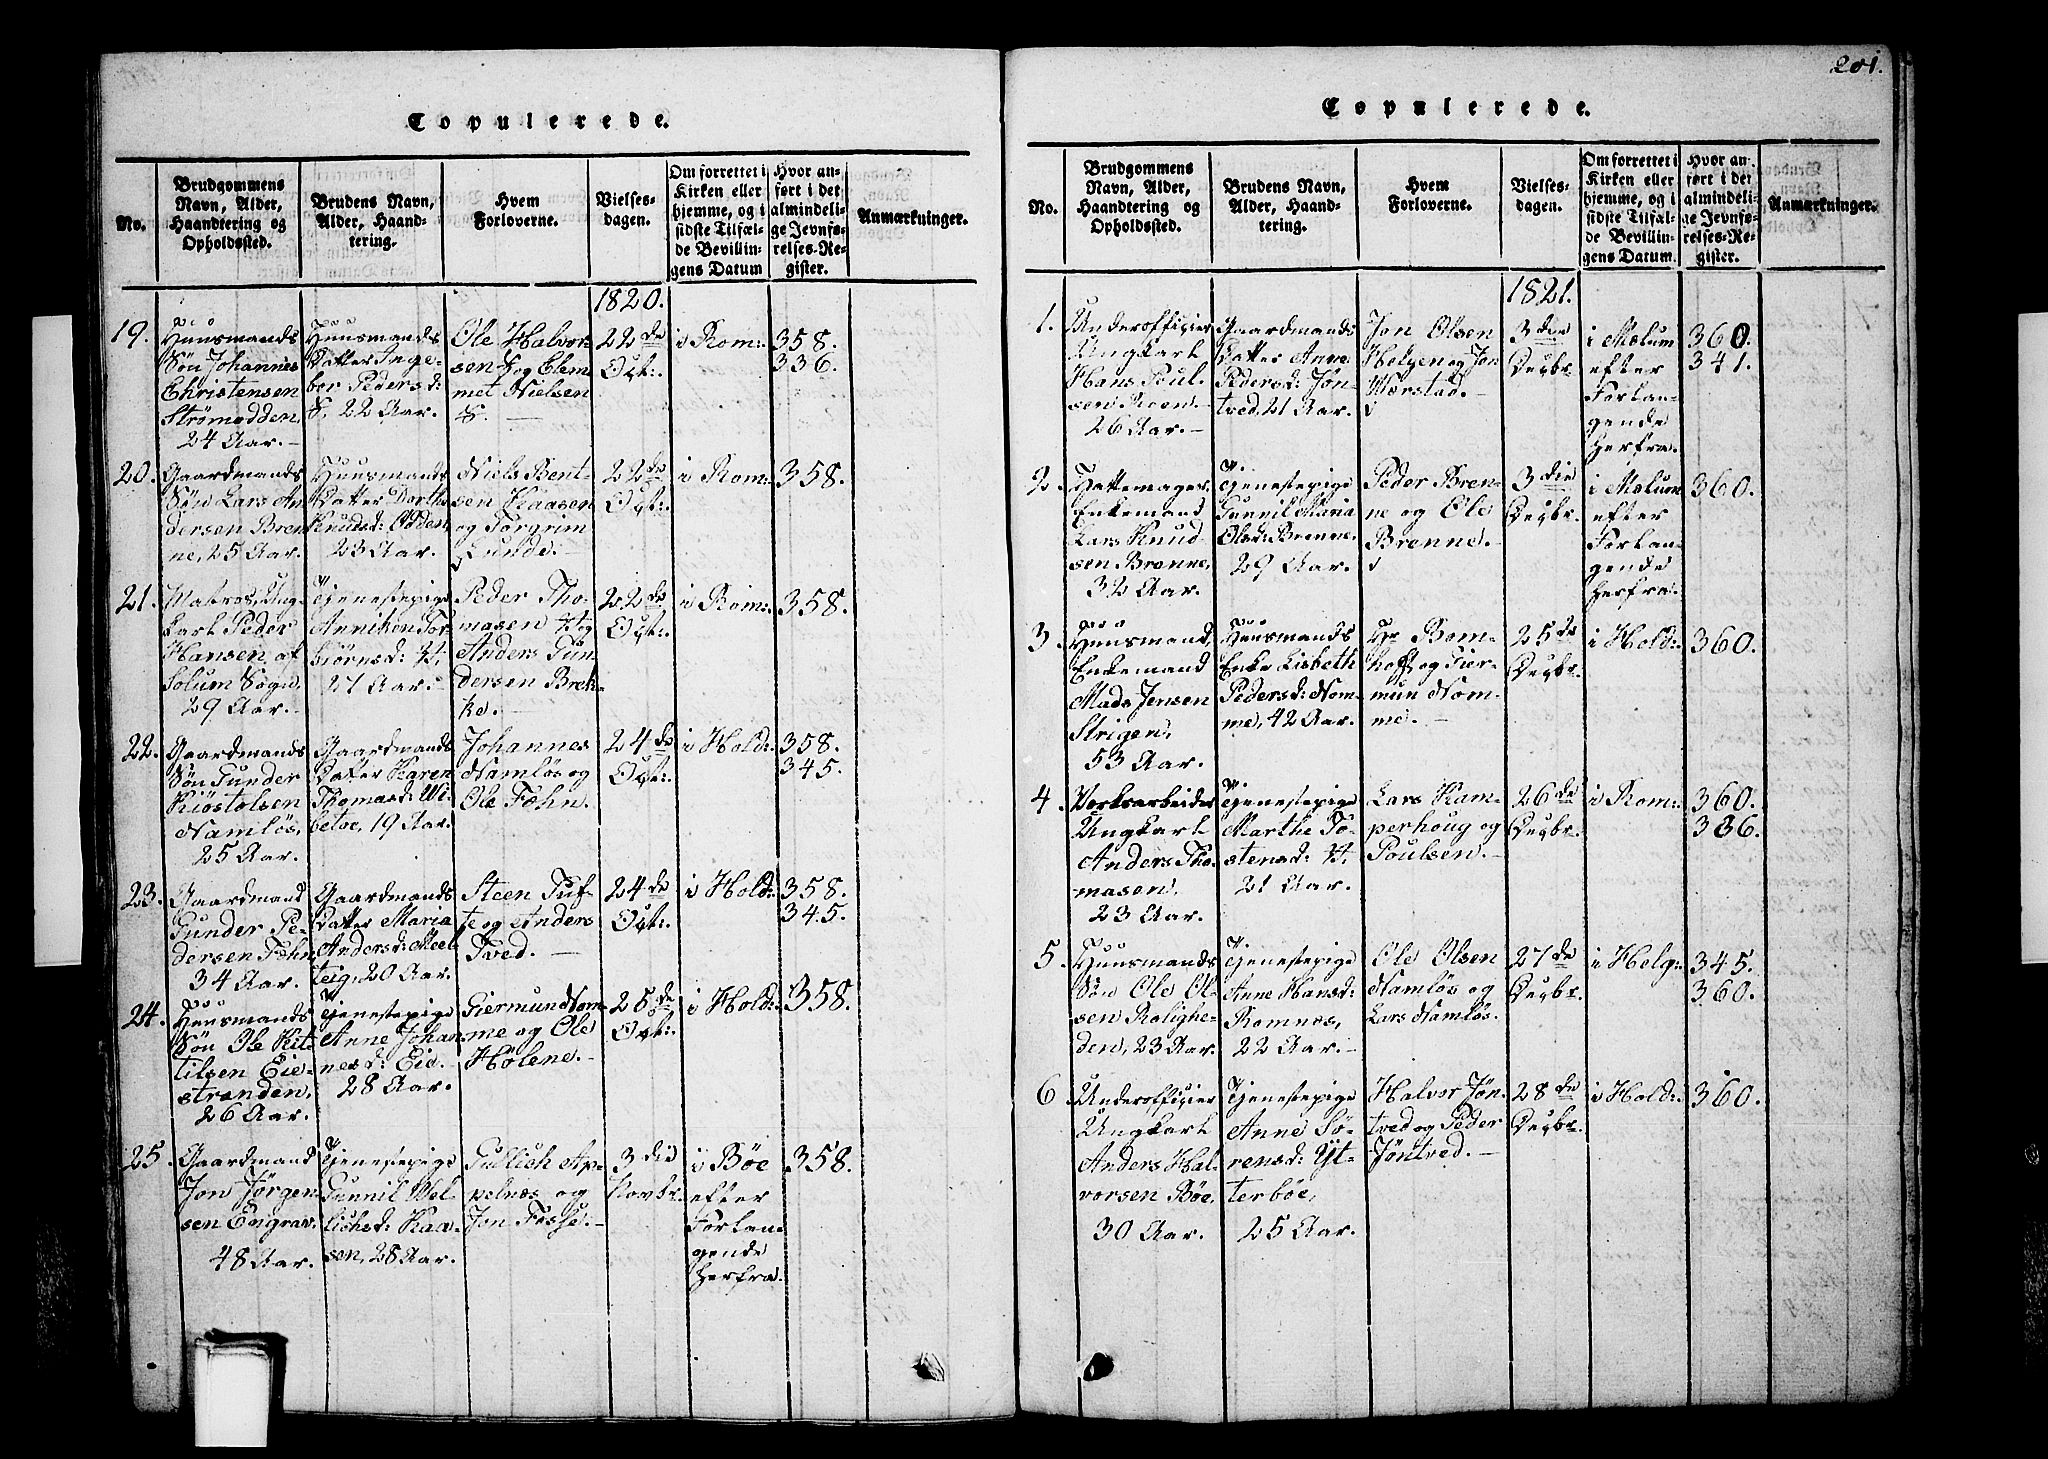 Copulerede.
No.
Brudgommens
Navn, Alder,
Haandtering og
Opholdssted.
Brudens Navn,
Alder, Haand-
tering.
Hvem
Forloverne.
Vielses-
dagen.
Om forrettet i
Kirken eller
hjemme, og i
sidste Tilfæl-
de Bevillin-
gens Datum
Hvor an-
ført i det
almindeli-
ge Jevnfø-
relses-Re-
gister.
Anmærkninger.
1820.
19.
Huusmands
Søn Johannes
Christensen
Strømodden,
24 Aar.-
Huusmands
Datter Inge-
bor Pedersd:
22 Aar.
Ole Halvor-
sen og Clem-
met Nielsen
22de
Oct:
i Rom:
358.
336.
20.
Gaardmands
Søn Lars An-
dersen Bren-
ne, 25 Aar.
Huusmands
Datter Dorthe
Knudsd: Odden
23 Aar.
Niels Bent-
sen Kaasen
og Torgrim
Lunde.-
22de
Oct:
i Rom:
358.
21.
Matros, Ung-
karl Peder
Hansen af
Solum Sogn,
29 Aar.-
Tjenestepige
Anniken Tor-
biørnsd:
27 Aar.-
Peder Tho-
masen og
Anders Gun-
dersen Brek-
ke.-
22de
Oct:
i Rom:
358.
22.
Gaardmands
Søn Gunder
Kiøstolsen
Namløs,
25 Aar.
Gaardmands
Datter Karen
Thomasd: Wi-
betoe, 19 Aar.
Johannes
Namløs og
Ole Fæhn.
24de
Oct:
i Hold:
358.
345.
23.
Gaardmand
Gunder Pe-
dersen Fæhn,
34 Aar.
Gaardmands
Datter Maria
Andersd: Meel-
teig, 20 Aar.
Steen Tuf-
te og Anders
Tved.-
24de
Oct:
i Hold:
358.
345.
24.
Huusmands
Søn Ole Kit-
tilsen Eie-
stranden,
26 Aar.
Tjenestepige
Anne Johan-
nesd: Eie.
28 Aar.
Giermund Nom-
me og Ole
Hølene.-
25de
Oct:
i Hold:
358.
25.
Gaardmand
Jon Jørgen-
sen Engrav.
48 Aar.
Tjenestepige
Gunnil Wel-
lichsd: Kaa-
sen, 28 Aar.
Gullich Ap-
pelnæs og
Jon Fosse.-
3die
Novbr.
i Bøe
efter
Forlan-
gende
herfra.
358.
201.
Copulerede.
No.
Brudgommens
Navn, Alder,
Haandtering og
Opholdssted.
Brudens Navn,
Alder, Haand-
tering.
Hvem
Forloverne.
Vielses-
dagen.
Om forrettet i
Kirken eller
hjemme, og i
sidste Tilfæl-
de Bevillin-
gens Datum.
Hvor an-
ført i det
almindeli-
ge Jevnfø-
relses-Re-
gister.
Anmærkninger.
1821.
1.
Underofficier
Ungkarl
Hans Poul-
sen Moen.-
26 Aar.-
Gaardmands
Datter Anne
Pedersd: Jøn-
tved, 21 Aar.
Jon Olsen
Helgen og Jon
Wærstad.-
3die
Decbr.
i Mælum
efter
Forlan-
gende
herfra.
360.
341.
2.
Hattemager,
Enkemand
Lars Knud-
sen Brenne,
32 Aar.
Tjenestepige
Gunnil Maria
Olsd: Brenne.
29 Aar.
Peder Bren-
ne og Ole
Brenne.-
3die
Decbr.
i Mælum
efter
Forlan-
gende
herfra.
360.
3.
Huusmand,
Enkemand
Mads Jensen
Strigen,
53 Aar.
Huusmands
Enke Lisbeth
Pedersd: Nom-
me, 42 Aar.
Hr. Bom-
hoff og Gier-
mun Nom-
me.-
25de
Decbr.
i Hold:
360.
4.
Verksarbeider
Ungkarl
Anders Tho-
masen,
23 Aar.
Tjenestepige
Marthe To-
stensd:
21 Aar.
Lars Kam-
perhoug og
Poulsen.-
26de
Decbr.
i Rom:
360.
336.
5.
Huusmands
Søn Ole Ol-
sen Rolighe-
den, 23 Aar.
Tjenestepige
Anne Hansd:
Romnes,
22 Aar.-
Ole Olsen
Namløs og
Lars Namløs.
27de
Decbr.
i Helg:
345.
360.
6.
Underofficier
Ungkarl
Anders Hal-
vorsen Bøe,
30 Aar.
Tjenestepige
Anne Sø-
rensd: Yt-
terbøe,
25 Aar.
Halvor Jøn-
tved og Peder
Jøntved.-
28de
Decbr.
i Hold:
360.